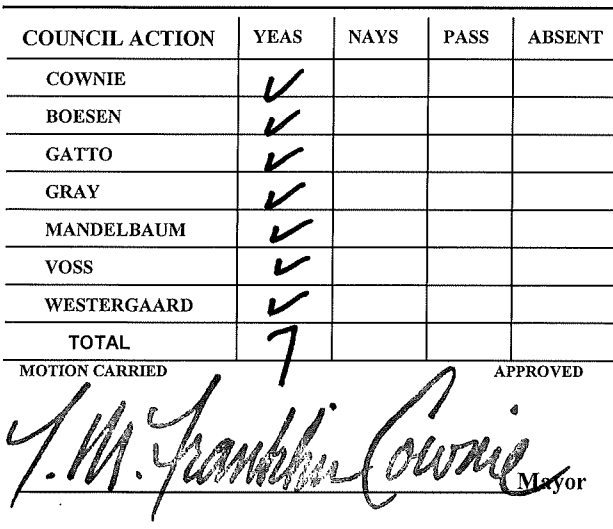 COUNCIL ACTION YEAS NAYS PASS ABSENT
COWNIE ✓
BOESEN ✓
GATTO ✓
GRAY ✓
MANDELBAUM ✓
VOSS ✓
WESTERGAARD ✓
TOTAL 7
MOTION CARRIED APPROVED
T. M. Franklin Cownie Mayor